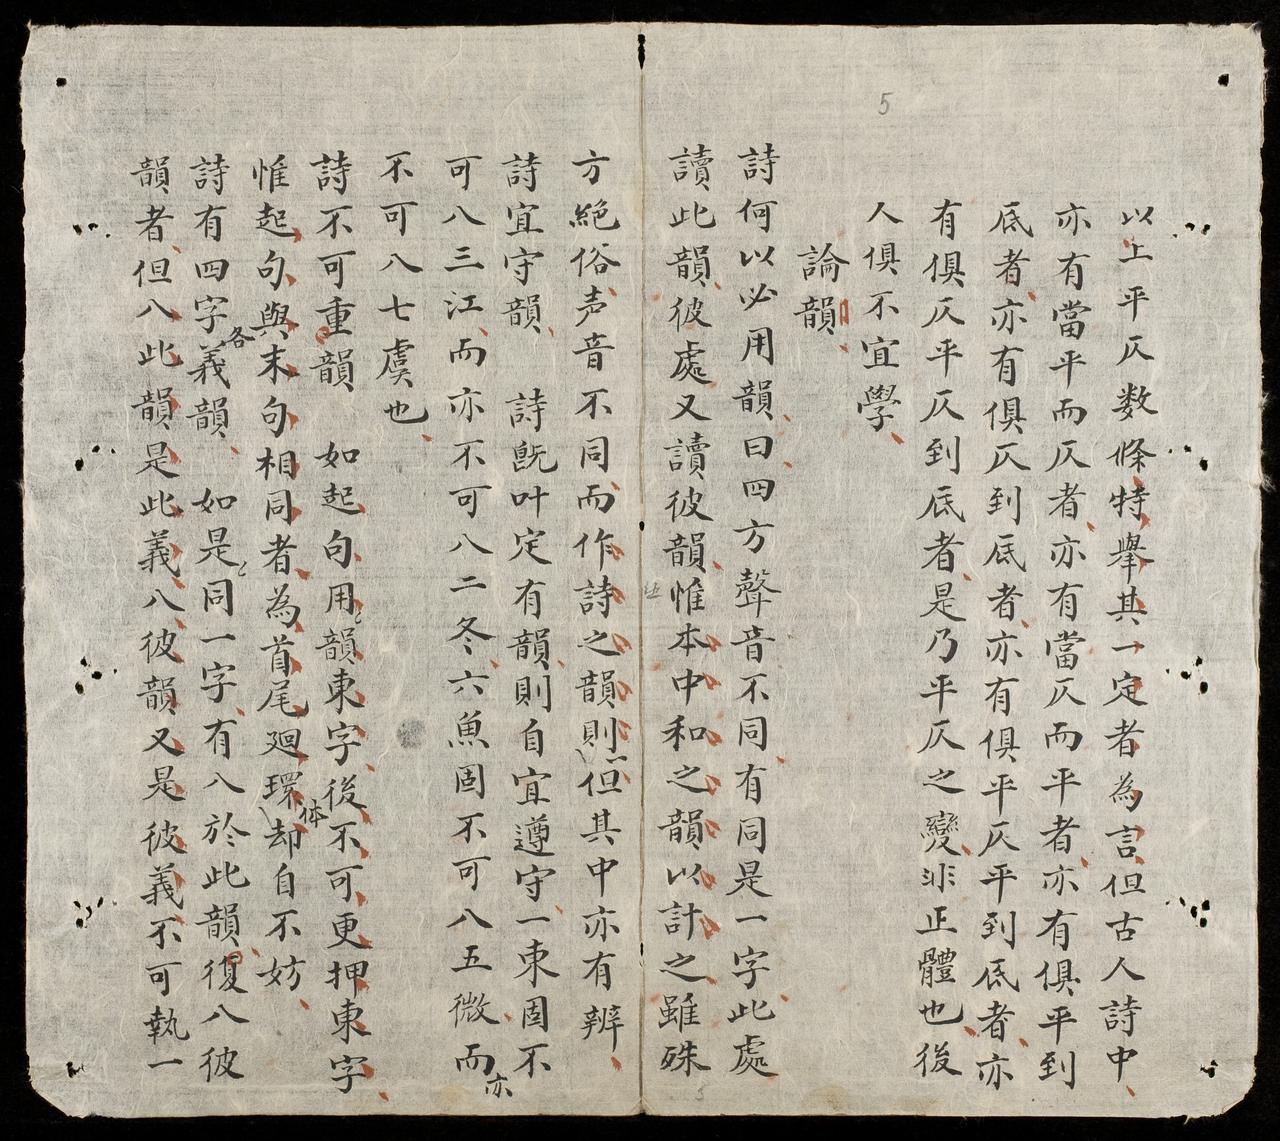 5
以上平仄数條特舉其一定者為言但古人詩中
亦有當平而仄者亦有當仄而平者亦有俱平到
底者亦有俱仄到底者亦有俱平仄平到底者亦
有俱仄平仄到底者是乃平仄之變非正體也後
人俱不宜學
論韻
詩何以必用韻曰四方聲音不同有同是一字此處
讀此韻彼處又讀彼韻惟本中和之韻以計之雖殊
方絕俗声音不同而作詩之韻則一但其中亦有辨
詩宜守韻 詩旣叶定有韻則自宜遵守一東固不
可八三江而亦不可八二冬六魚固不可八五微而亦
不可八七虞也
詩不可重韻 如起句用韻東字後不可更押東字
惟起句與末句相同者為首尾廻環体却自不妨
詩有四字各義韻 如是同一字有八於此韻復八彼
韻者但八此韻是此義八彼韻又是彼義不可執一